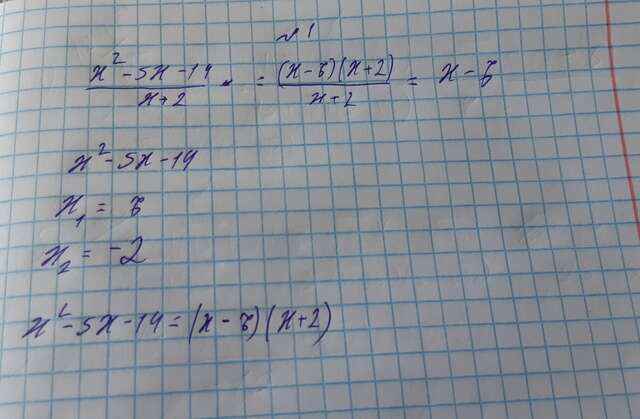 №1
(x² - 5x - 14)/(x+2) = ((x - 7)(x+2))/(x+2) = x - 7
x² - 5x - 14
x₁ = 7
x₂ = -2
x² - 5x - 14 = (x - 7)(x+2)